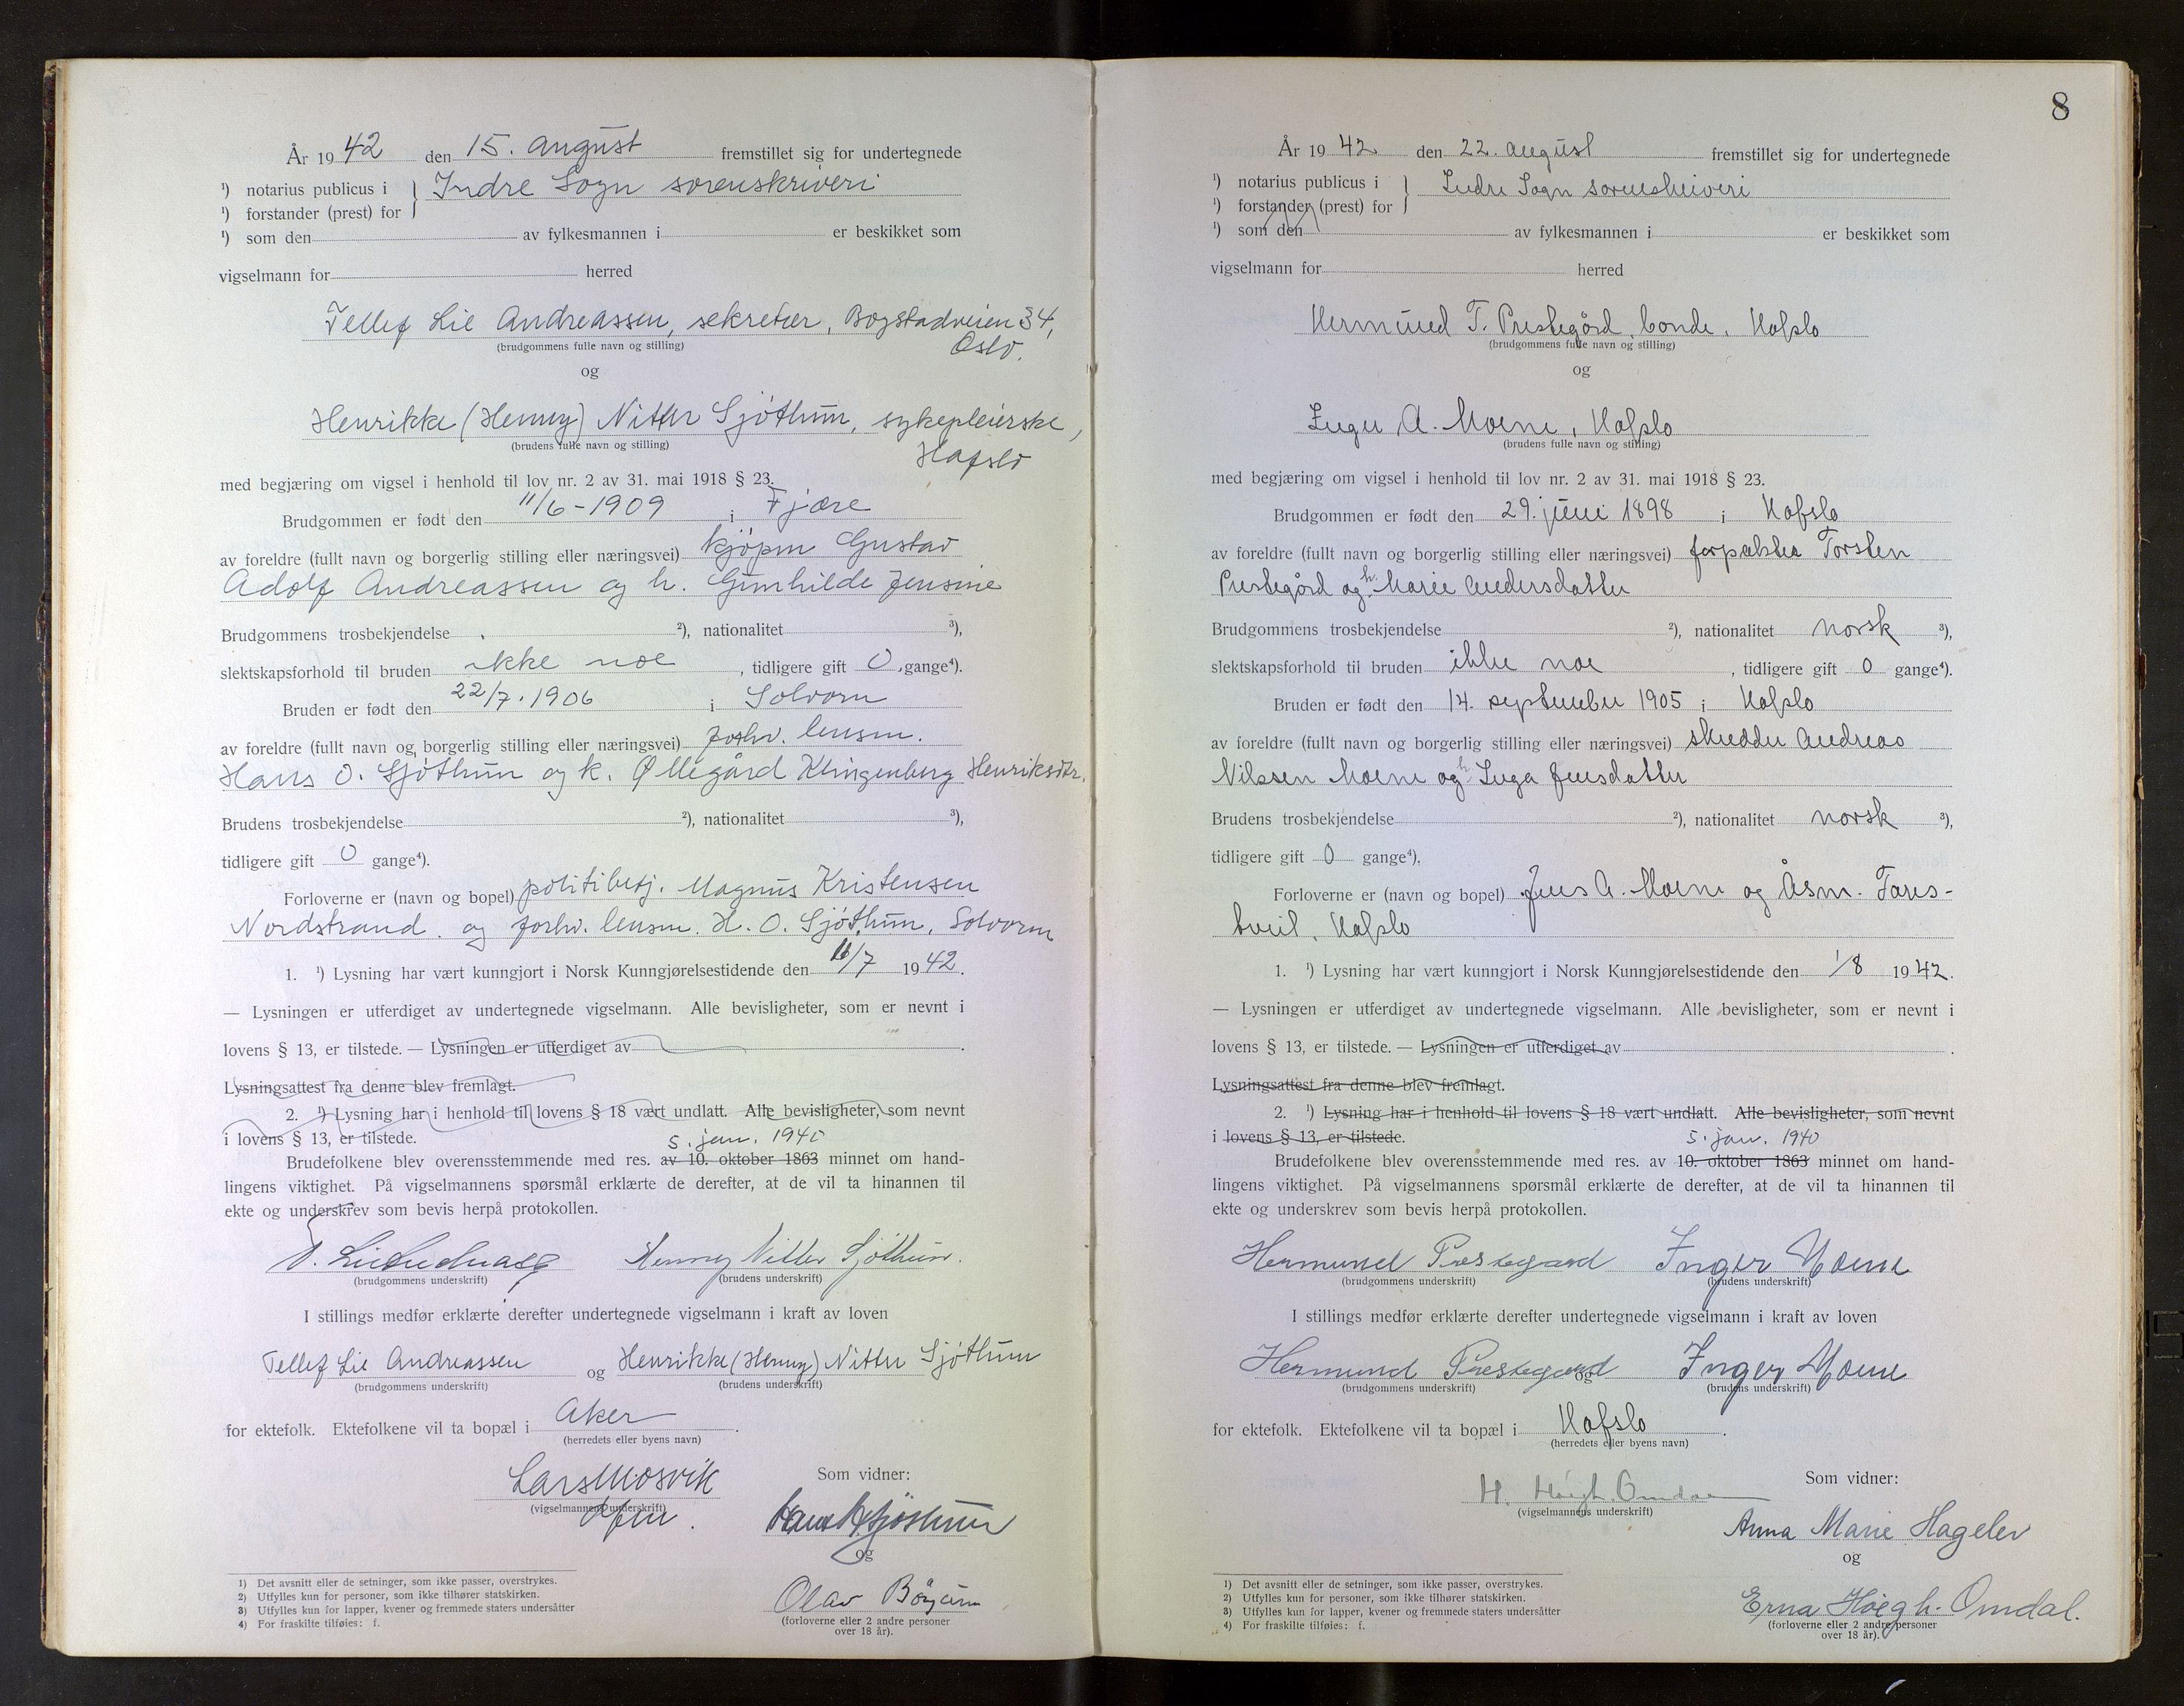 År 1942 den 15. august fremstillet sig for undertegnede
¹) notarius publicus i } Indre Sogn sorenskriveri
¹) forstander (prest) for
¹) som den av fylkesmannen i er beskikket som
vigselmann for herred
Tellef Lie Andreassen, sekretær, Bogstadveien 34,
Oslo.
(brudgommens fulle navn og stilling)
og
Henrikke (Henny) Nitter Sjöthun, sykepleierske,
(brudens fulle navn og stilling)
Hafslo
med begjæring om vigsel i henhold til lov nr. 2 av 31. mai 1918 § 23.
Brudgommen er født den 11/6-1909 i Fjære
av foreldre (fullt navn og borgerlig stilling eller næringsvei) kjöpm Gustav
Adolf Andreassen og h. Gunhilde Jensine
Brudgommens trosbekjendelse ²), nationalitet ³),
slektskapsforhold til bruden ikke noe, tidligere gift 0 gange⁴).
Bruden er født den 22/7.1906 i Solvorn
av foreldre (fullt navn og borgerlig stilling eller næringsvei) forhv. lensm.
Hans O. Sjöthun og k. Øllegård Klingenberg Henriksdtr.
Brudens trosbekjendelse ²), nationalitet ³),
tidligere gift 0 gange⁴).
Forloverne er (navn og bopel) politibetj. Magnus Kristensen
Nordstrand. og forhv. lensm. H. O. Sjöthun, Solvorn
1. ¹) Lysning har vært kunngjort i Norsk Kunngjørelsestidende den /7 1942.
— Lysningen er utferdiget av undertegnede vigselmann. Alle bevisligheter, som er nevnt i
lovens § 13, er tilstede. — Lysningen er utferdiget av .
Lysningsattest fra denne blev fremlagt.
2. ¹) Lysning har i henhold til lovens § 18 vært undlatt. Alle bevisligheter, som nevnt
i lovens § 13, er tilstede.
5. jan. 1940
Brudefolkene blev overensstemmende med res. av 10. oktober 1863 minnet om hand-
lingens viktighet. På vigselmannens spørsmål erklærte de derefter, at de vil ta hinannen til
ekte og underskrev som bevis herpå protokollen.
Henny Nitter Sjöthun.
(brudgommens underskrift) (brudens underskrift)
I stillings medfør erklærte derefter undertegnede vigselmann i kraft av loven
Tellef Lie Andreassen og Henrikke (Henny) Nitter Sjöthun
(brudgommens underskrift) (brudens underskrift)
for ektefolk. Ektefolkene vil ta bopæl i Aker.
(herredets eller byens navn)
Lars Mosvik
(vigselmannens underskrift)
Som vidner:
og
Olav
(forloverne eller 2 andre personer
over 18 år).
1) Det avsnitt eller de setninger, som ikke passer, overstrykes.
2) Utfylles kun for personer, som ikke tilhører statskirken.
3) Utfylles kun for lapper, kvener og fremmede staters undersåtter
4) For fraskilte tilføies: f.
8
År 1942 den 22. august fremstillet sig for undertegnede
¹) notarius publicus i } Indre Sogn sorenskriveri
¹) forstander (prest) for
¹) som den av fylkesmannen i er beskikket som
vigselmann for herred
Hermund T. Prestegård, bonde, Hafslo
(brudgommens fulle navn og stilling)
og
Inger A. Moene, Hafslo
(brudens fulle navn og stilling)
med begjæring om vigsel i henhold til lov nr. 2 av 31. mai 1918 § 23.
Brudgommen er født den 29. juni 1898 i Hafslo
av foreldre (fullt navn og borgerlig stilling eller næringsvei) forpakter Torsten
Prestegård og h. Marie Andersdatter
Brudgommens trosbekjendelse ²), nationalitet norsk ³),
slektskapsforhold til bruden ikke noe, tidligere gift 0 gange⁴).
Bruden er født den 14. september 1905 i Hafslo
av foreldre (fullt navn og borgerlig stilling eller næringsvei) skredder Andreas
Nilssen Moene og h. Inga Jensdatter
Brudens trosbekjendelse ²), nationalitet norsk ³),
tidligere gift 0 gange⁴).
Forloverne er (navn og bopel) Jens A. Moene og Åsm. Fares-
tveit, Hafslo
1. ¹) Lysning har vært kunngjort i Norsk Kunngjørelsestidende den 1/8 1942.
— Lysningen er utferdiget av undertegnede vigselmann. Alle bevisligheter, som er nevnt i
lovens § 13, er tilstede. — Lysningen er utferdiget av .
Lysningsattest fra denne blev fremlagt.
2. ¹) Lysning har i henhold til lovens § 18 vært undlatt. Alle bevisligheter, som nevnt
i lovens § 13, er tilstede.
5. jan. 1940
Brudefolkene blev overensstemmende med res. av 10. oktober 1863 minnet om hand-
lingens viktighet. På vigselmannens spørsmål erklærte de derefter, at de vil ta hinannen til
ekte og underskrev som bevis herpå protokollen.
Hermund Prestegaard Inger Moene
(brudgommens underskrift) (brudens underskrift)
I stillings medfør erklærte derefter undertegnede vigselmann i kraft av loven
Hermund Prestegaard og Inger Moene
(brudgommens underskrift) (brudens underskrift)
for ektefolk. Ektefolkene vil ta bopæl i Hafslo.
(herredets eller byens navn)
H. Høegh. Omdal
(vigselmannens underskrift)
Som vidner:
Anna Marie Hagelev
og
Erna Høegh. Omdal.
(forloverne eller 2 andre personer
over 18 år).
1) Det avsnitt eller de setninger, som ikke passer, overstrykes.
2) Utfylles kun for personer, som ikke tilhører statskirken.
3) Utfylles kun for lapper, kvener og fremmede staters undersåtter
4) For fraskilte tilføies: f.